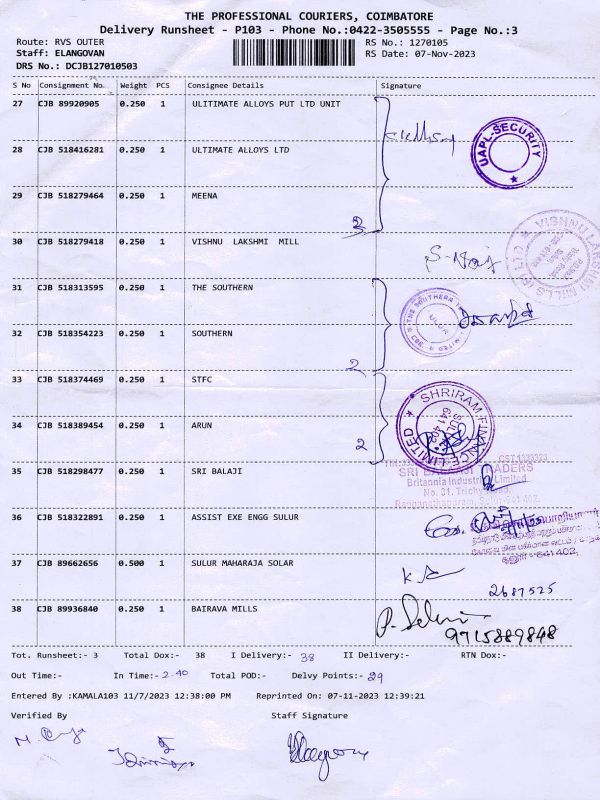 THE PROFESSIONAL COURIERS, COIMBATORE
Delivery Runsheet - P103 - Phone No.:0422-3505555 - Page No.:3
Route: RVS OUTER
RS No.: 1270105
Staff: ELANGOVAN
RS Date: 07-Nov-2023
DRS No.: DCJB127010503
S No Consignment No Weight PCS Consignee Details Signature
27 CJB 89920905 0.250 1 ULITIMATE ALLOYS PUT LTD UNIT
UAPL-SECURITY
28 CJB 518416281 0.250 1 ULTIMATE ALLOYS LTD
29 CJB 518279464 0.250 1 MEENA
2
30 CJB 518279418 0.250 1 VISHNU LAKSHMI MILL
VISHNU LAKSHMI MILLS (P) LTD
31 CJB 518313595 0.250 1 THE SOUTHERN
THE SOUTHERN
32 CJB 518354223 0.250 1 SOUTHERN
2
33 CJB 518374469 0.250 1 STFC
SHRIRAM FINANCE LIMITED
SULUR
641 402
34 CJB 518389454 0.250 1 ARUN
2
CST.1333323
35 CJB 518298477 0.250 1 SRI BALAJI
SRI BALAJI TRADERS
Britannia Industries Limited
No. 31, Trichy Road,
Ranganathapuram, Sulur-641 402.
36 CJB 518322891 0.250 1 ASSIST EXE ENGG SULUR
சூலூர் - 641 402.
37 CJB 89662656 0.500 1 SULUR MAHARAJA SOLAR
2687525
38 CJB 89936840 0.250 1 BAIRAVA MILLS
P. Selvi
9715889848
Tot. Runsheet:- 3 Total Dox:- 38 I Delivery:- 38 II Delivery:- RTN Dox:-
Out Time:- In Time:- 2.40 Total POD:- Delvy Points:- 29
Entered By :KAMALA103 11/7/2023 12:38:00 PM Reprinted On: 07-11-2023 12:39:21
Verified By Staff Signature